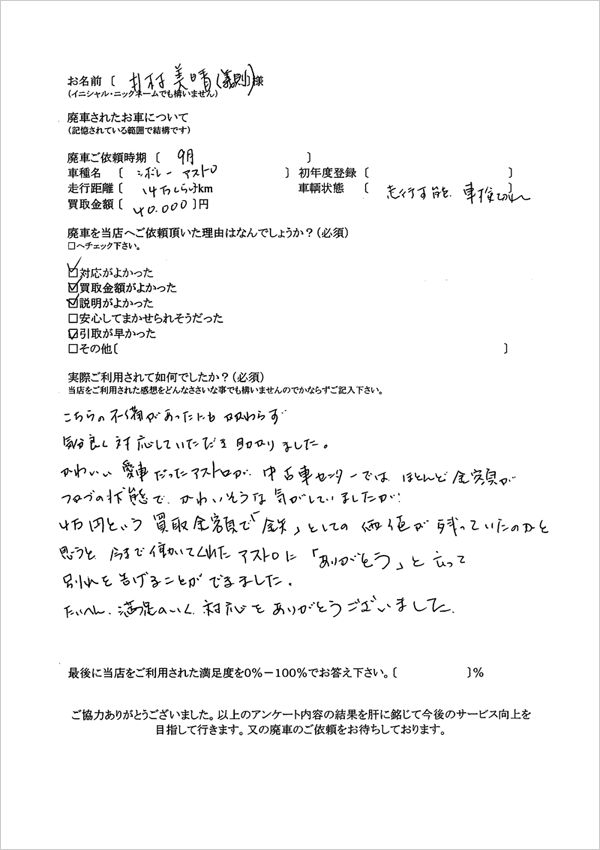 お名前 〔 村 美晴 (義則)〕様
(イニシャル・ニックネームでも構いません)
廃車されたお車について
(記憶されている範囲で結構です)
廃車ご依頼時期 〔 9月 〕
車種名 〔 シボレー アストロ 〕 初年度登録 〔 〕
走行距離 〔 14万くらい〕km 車輌状態 〔 走行可能 車検切れ 〕
買取金額 〔 40.000 〕円
廃車を当店へご依頼頂いた理由はなんでしょうか?(必須)
□へチェック下さい。
☑対応がよかった
☑買取金額がよかった
☑説明がよかった
□安心してまかせられそうだった
☑引取が早かった
□その他〔 〕
実際ご利用されて如何でしたか?(必須)
当店をご利用された感想をどんなささいな事でも構いませんのでかならずご記入下さい。
こちらの不備があったにもかかわらず
気分良く対応していただき助かりました。
かわいい愛車だったアストロが、中古車センターでは、ほとんど金額が
つかずの状態で、かわいそうな気がしていましたが、
4万円という買取金額で「鉄」としての価値が残っていたのかと
思うと、今まで働いてくれたアストロに「ありがとう」と言って
別れを告げることができました。
たいへん、満足のいく対応をありがとうございました。
最後に当店をご利用された満足度を0%－100%でお答え下さい。〔 〕%
ご協力ありがとうございました。以上のアンケート内容の結果を肝に銘じて今後のサービス向上を
目指して行きます。又の廃車のご依頼をお待ちしております。